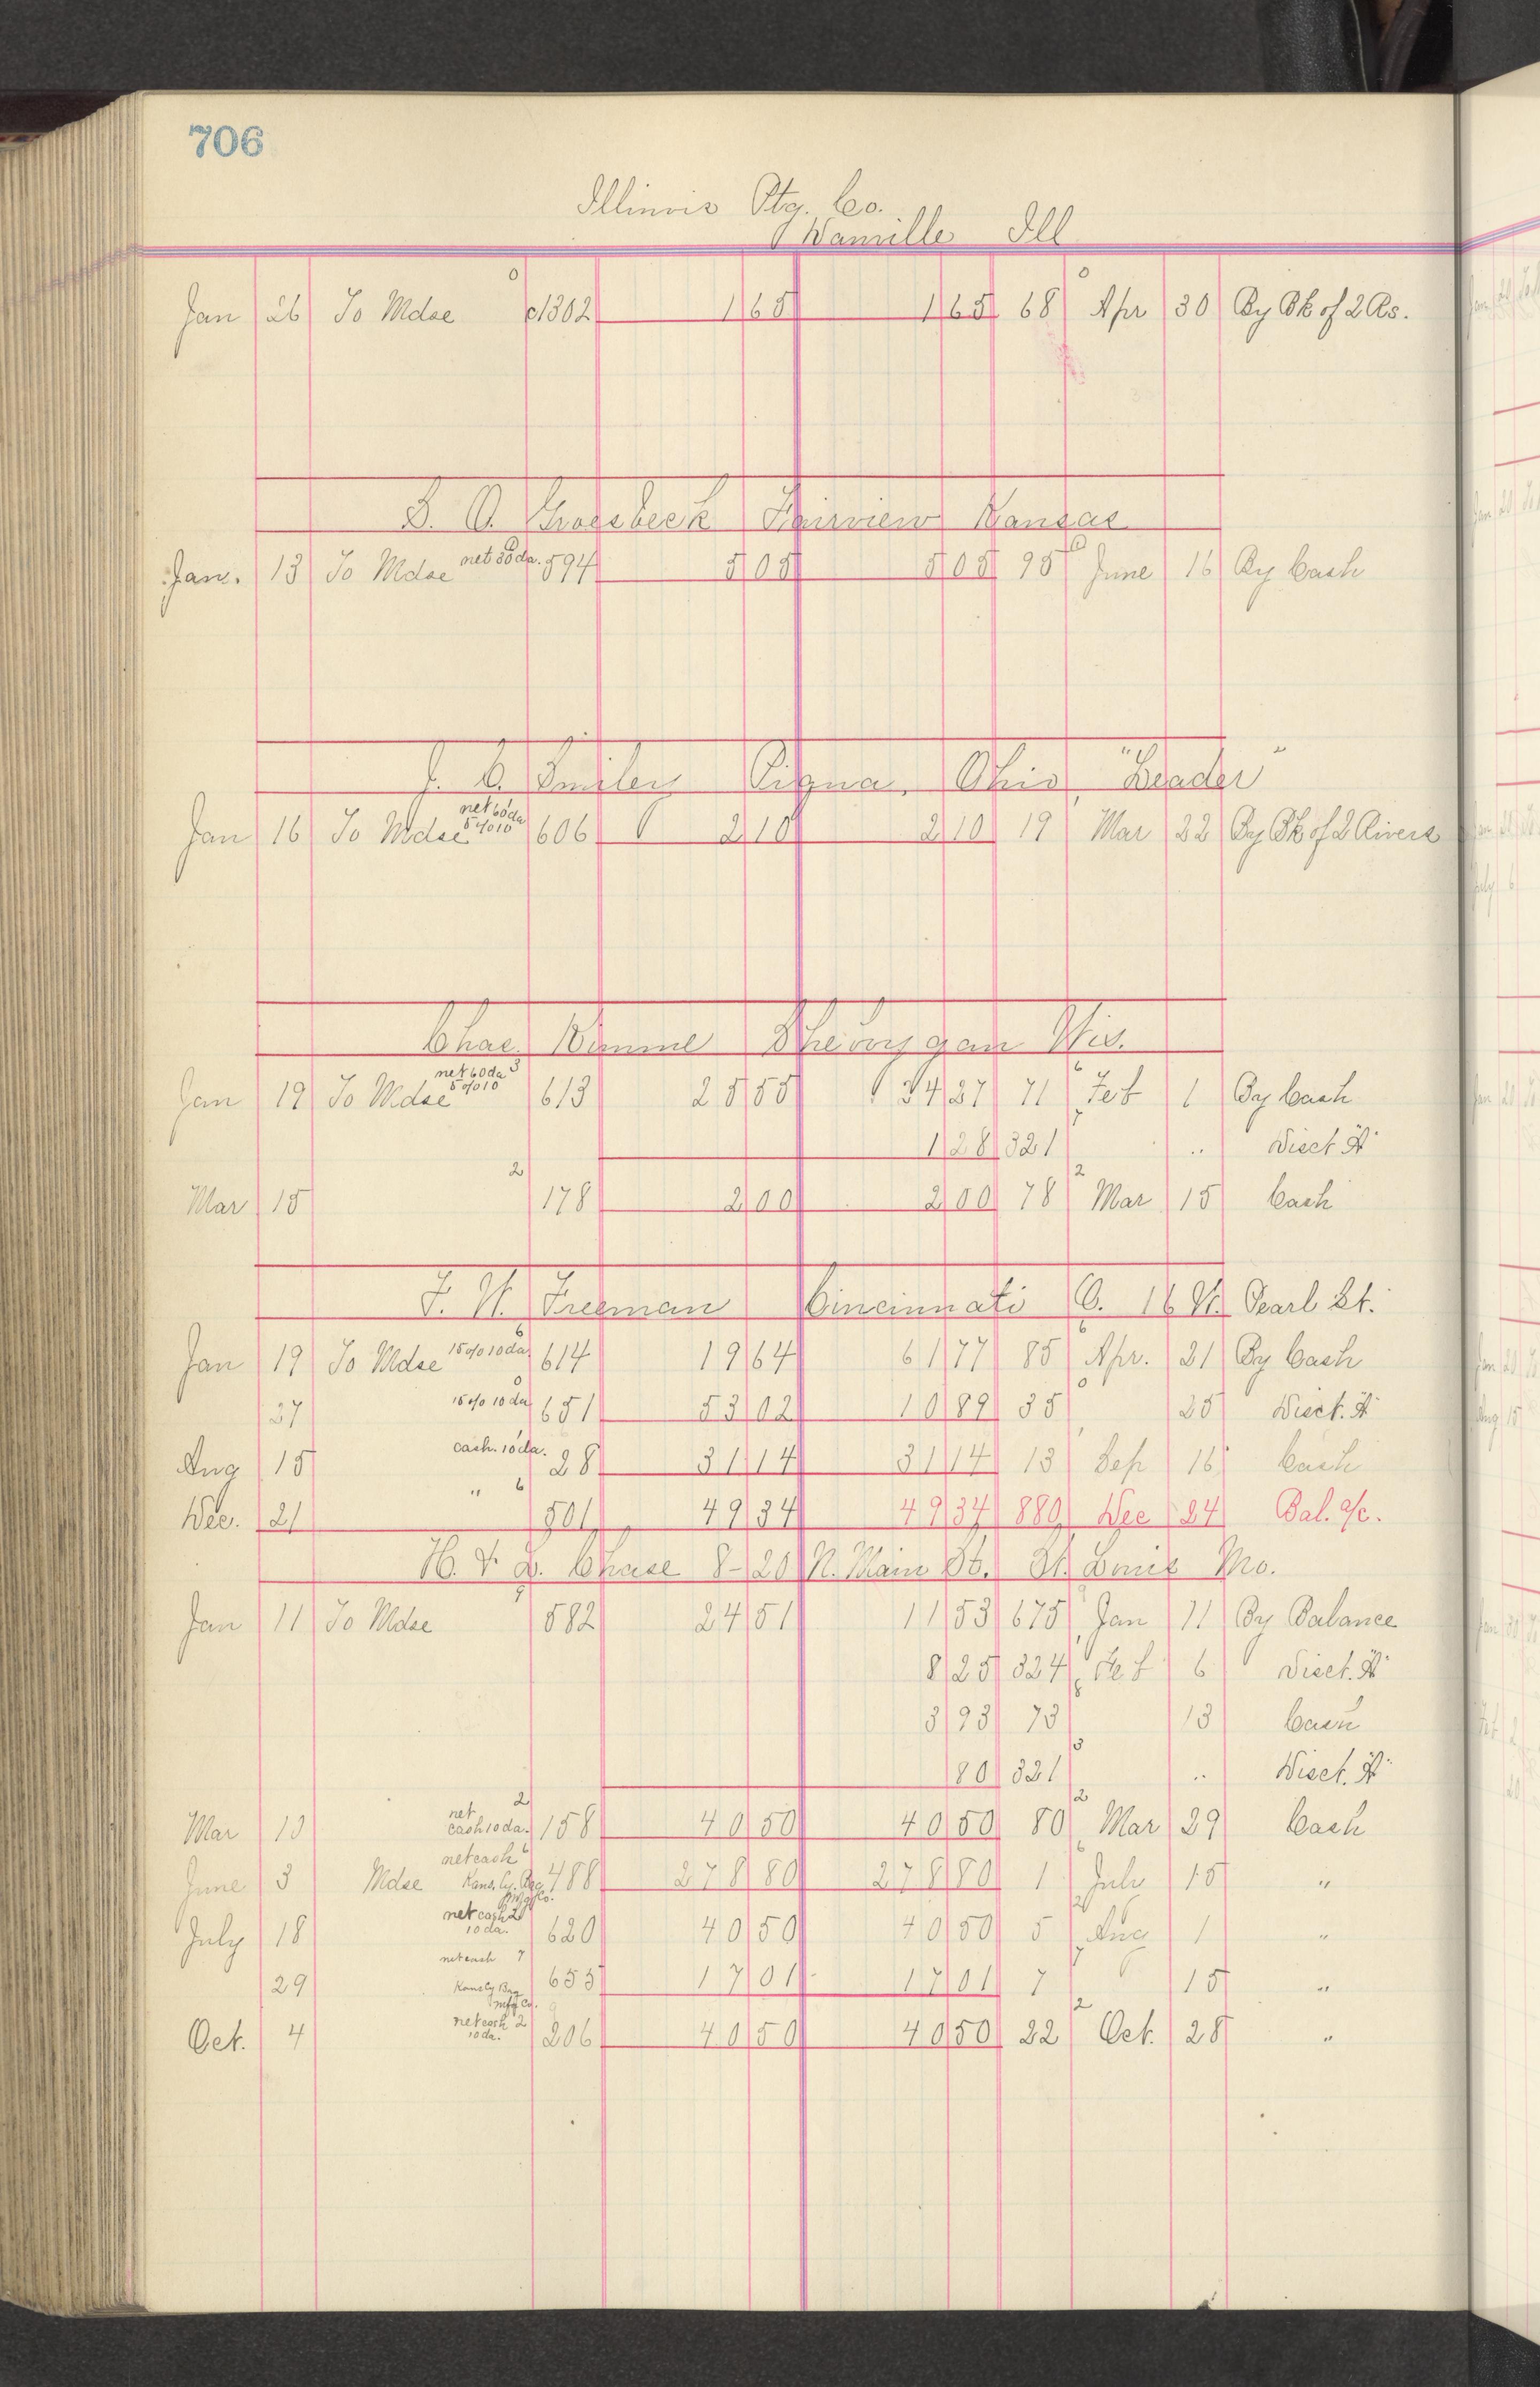 706
Illinois Ptg. Co.
Danville Ill
Jan 26 To Mdse c1302 1 65 1 65 68 Apr 30 By Bk of 2 Rs.
Fairview Kansas
Jan. 13 To Mdse net 30 da. 594 5 05 5 05 95 June 16 By Cash
J. C. Smiley Piqua, Ohio "Leader"
Jan 16 To Mdse net 60 da 5% 10 606 2 10 2 10 19 Mar 22 By Bk of 2 Rivers
Chas. Sheboygan Wis.
Jan 19 To Mdse net 60 da 5% 10 3 613 25 55 24 27 71 Feb 1 By Cash
1 28 321 " Disct. A
Mar 15 2 178 2 00 2 00 78 2 Mar 15 Cash
F. W. Freeman Cincinnati O. 16 W. Pearl St.
Jan 19 To Mdse 15% 10 da 6 614 19 64 61 77 85 Apr. 21 By Cash
27 15% 10 da 651 53 02 10 89 35 25 Disct. A
Aug 15 cash. 10 da. 28 31 14 31 14 13 Sep 16 Cash
Dec. 21 " 6 501 49 34 49 34 880 Dec 24 Bal. a/c.
H. & L. Chase 8-20 N. Main St. St. Louis Mo.
Jan 11 To Mdse 9 582 24 51 11 53 675 Jan 11 By Balance
8 25 324 Feb 6 Disct. A
3 93 73 13 Cash
80 321 3 " Disct. A
Mar 13 net cash 10 da. 2 158 40 50 40 50 80 2 Mar 29 Cash
June 3 Mdse net cash 6 Kans. Cy. Bag Mfg Co. 488 278 80 278 80 1 July 15 "
July 18 net cash 2 10 da. 620 40 50 40 50 5 Aug 1 "
29 net cash 7 Kans Cy Bag Mfg Co. 655 17 01 17 01 7 15 "
Oct. 4 net cash 2 10 da. 206 40 50 40 50 22 2 Oct. 28 "